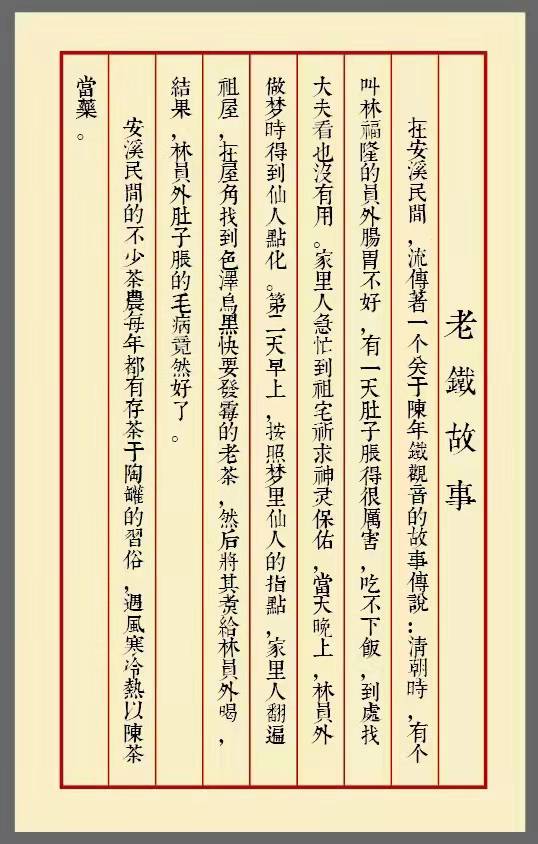 老鐵故事
在安溪民間，流傳著一个关于陳年鐵觀音的故事傳說：清朝時，有个
叫林福隆的員外腸胃不好，有一天肚子脹得很厲害，吃不下飯，到處找
大夫看也沒有用。家里人急忙到祖宅祈求神灵保佑，當天晚上，林員外
做梦時得到仙人點化。第二天早上，按照梦里仙人的指點，家里人翻遍
祖屋，在屋角找到色澤烏黑快要發霉的老茶，然后將其煮給林員外喝，
結果，林員外肚子脹的毛病竟然好了。
安溪民間的不少茶農每年都有存茶于陶罐的習俗，遇風寒冷熱以陳茶
當藥。